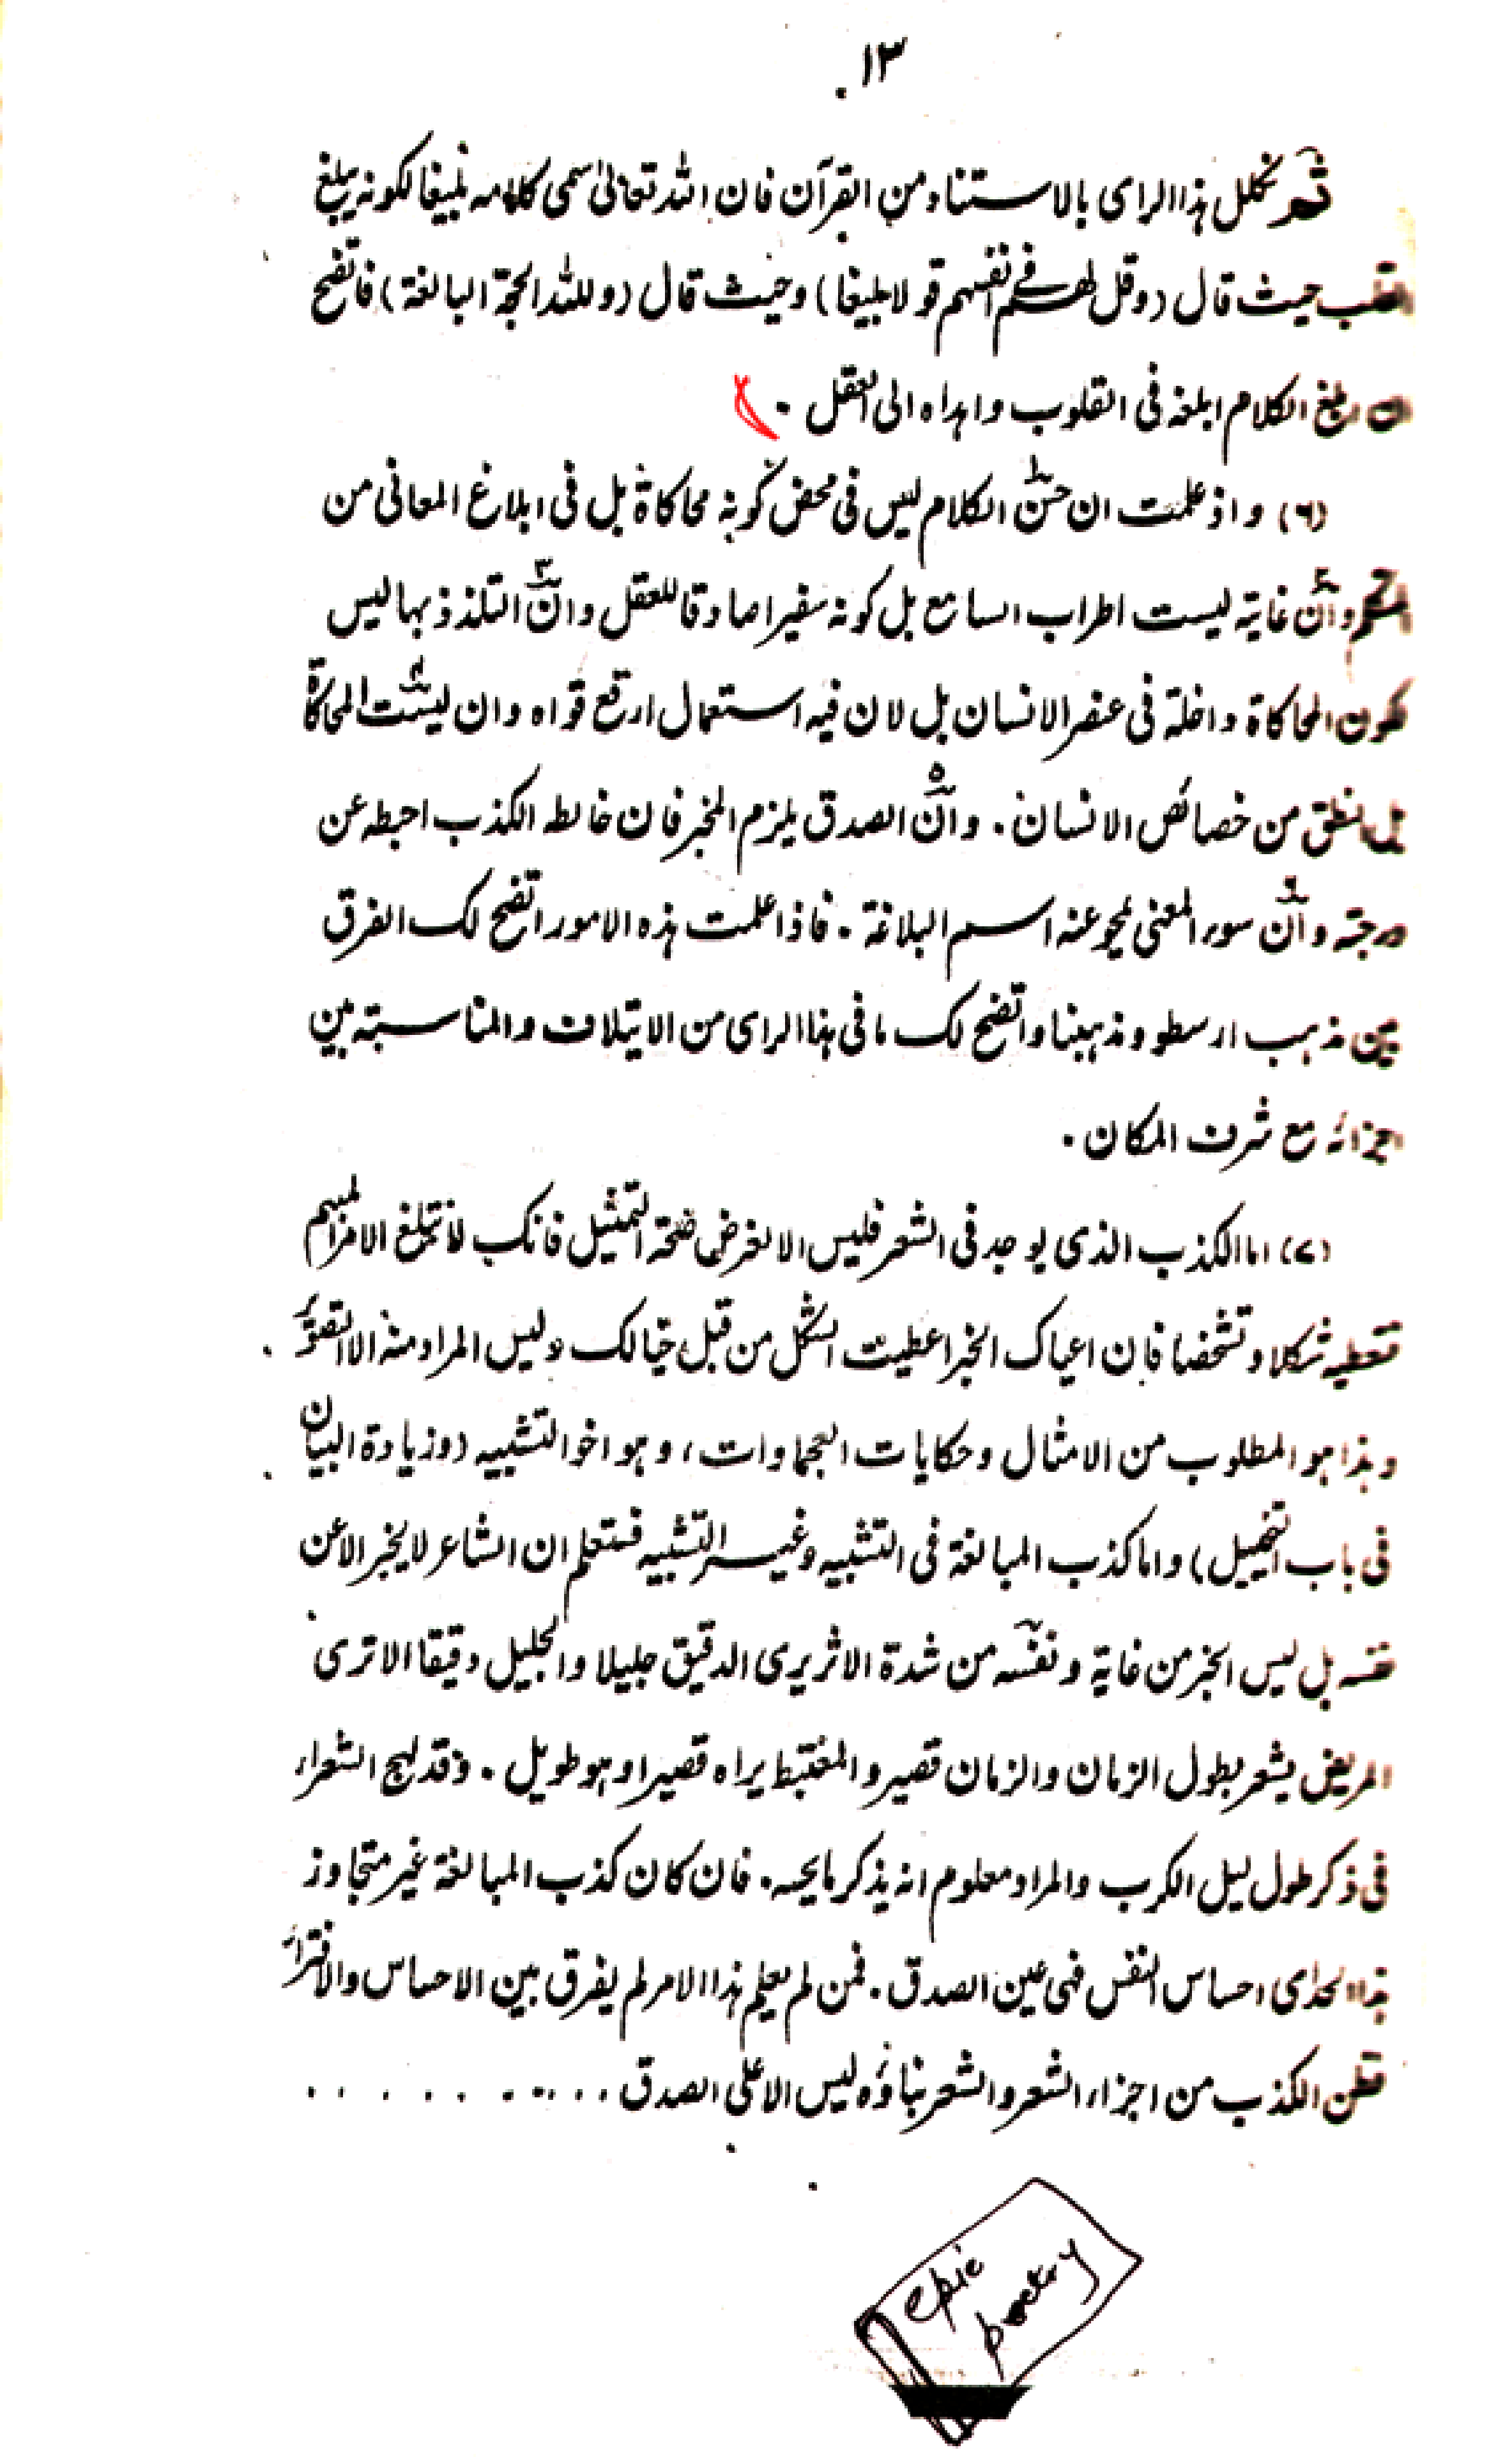 ١٣
ثم تكمل هذا الراى بالاستناد من القرآن فان الله تعالىٰ سمى كلامه بليغا لكونه يبلغ
القلب حيث قال (وقل لهم فى انفسهم قولا بليغا) وحيث قال (ولله الحجة البالغة) فاتضح
ان ابلغ الكلام ابلغه فى القلوب واهداه الى العقل ٠
(٦) واذ علمت ان حسن الكلام ليس فى محض كونه محاكاة بل فى ابلاغ المعانى من
المتكلم وأنّ غايته ليست اطراب السامع بل كونه سفيرا صادقا للعقل وانّ التلذذ بها ليس
لكون المحاكاة داخلة فى عنصر الانسان بل لان فيه استعمال ارفع قواه وان ليست المحاكاة
بل النطق من خصائص الانسان. وأنّ الصدق يلزم الخبر فان خالطه الكذب احبطه عن
درجته وأنّ سوء المعنى يمحو عنه اسم البلاغة. فاذا علمت هذه الامور اتضح لك الفرق
بين مذهب ارسطو ومذهبنا واتضح لك ما فى هذا الراى من الايتلاف والمناسبة بين
اجزائه مع شرف المكان.
(٧) اما الكذب الذى يوجد فى الشعر فليس الا لغرض صحة التمثيل فانك لا تبلغ الامر المبهم
فتعطيه شكلا وتشخصا فان اعياك الخبر اعطيت الشكل من قبل خيالك وليس المراد منه الا التصوّر
وهذا هو المطلوب من الامثال وحكايات العجماوات، وهو اخو التشبيه (وزيادة البيان
فى باب التخييل) واما كذب المبالغة فى التشبيه وغير التشبيه فستعلم ان الشاعر لا يخبر الا عن
نفسه بل ليس الخبر من غايته ونفسه من شدة الاثر يرى الدقيق جليلا والجليل دقيقا الا ترى
المريض يشعر بطول الزمان والزمان قصير والمغتبط يراه قصيرا وهو طويل. وقد لهج الشعراء
فى ذكر طول ليل الكرب والمراد معلوم انه يذكر ما يحسه. فان كان كذب المبالغة غير متجاوز
هذا احساس النفس فهى عين الصدق. فمن لم يعلم هذا الامر لم يفرق بين الاحساس والافتراء
فظن الكذب من اجزاء الشعر والشعر بناؤه ليس الا على الصدق . . . . . . . . . . .
epic
poetry